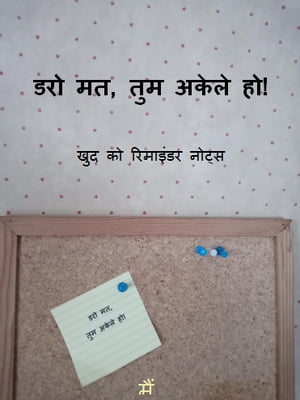 डरो मत, तुम अकेले हो!
खुद को रिमाइंडर नोट्स
डरो मत,
तुम अकेले हो!
मैं